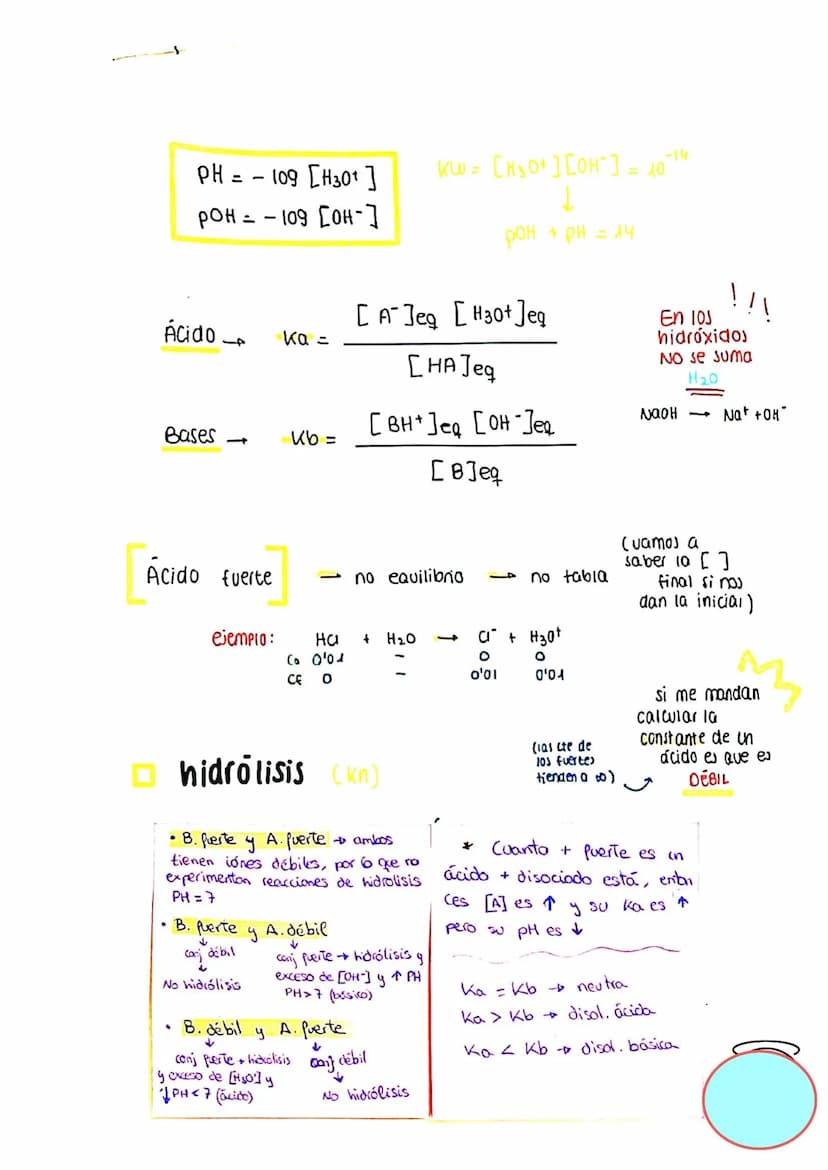 PH = - log [H3O+]
pOH = - log [OH-]
Kw = [H3O+][OH-] = 10^-14
↓
pOH + pH = 14
Ácido → Ka = [A-]eq [H3O+]eq / [HA]eq
En los
hidróxidos
NO se suma
H2O
!!!
NaOH → Na+ + OH-
Bases → Kb = [BH+]eq [OH-]eq / [B]eq
[Ácido fuerte] → no equilibrio → no tabla
(vamos a
saber la [ ]
final si nos
dan la inicial)
ejemplo: HCl + H2O → Cl- + H3O+
Co 0'01 - 0 0
CF 0 - 0'01 0'01
si me mandan
calcular la
constante de un
ácido es que es
DÉBIL
(las cte de
los fuertes
tienden a ∞)
hidrólisis (kn)
• B. fuerte y A. fuerte → ambos
tienen iónes débiles, por lo que no
experimentan reacciones de hidrolisis
PH = 7
• B. fuerte y A. débil
↓ ↓
conj débil
↓
No hidrólisis
conj fuerte → hidrólisis y
exceso de [OH-] y ↑ PH
PH > 7 (básico)
• B. débil y A. fuerte
↓ ↓
conj fuerte → hidrolisis
y exceso de [H3O+] y
↓ PH < 7 (ácido)
conj débil
↓
No hidrólisis
* Cuanto + fuerte es un
ácido + disociado está, enton
ces [A] es ↑ y su Ka es ↑
pero su pH es ↓
Ka = Kb → neutra
Ka > Kb → disol. ácida
Ka < Kb → disol. básica